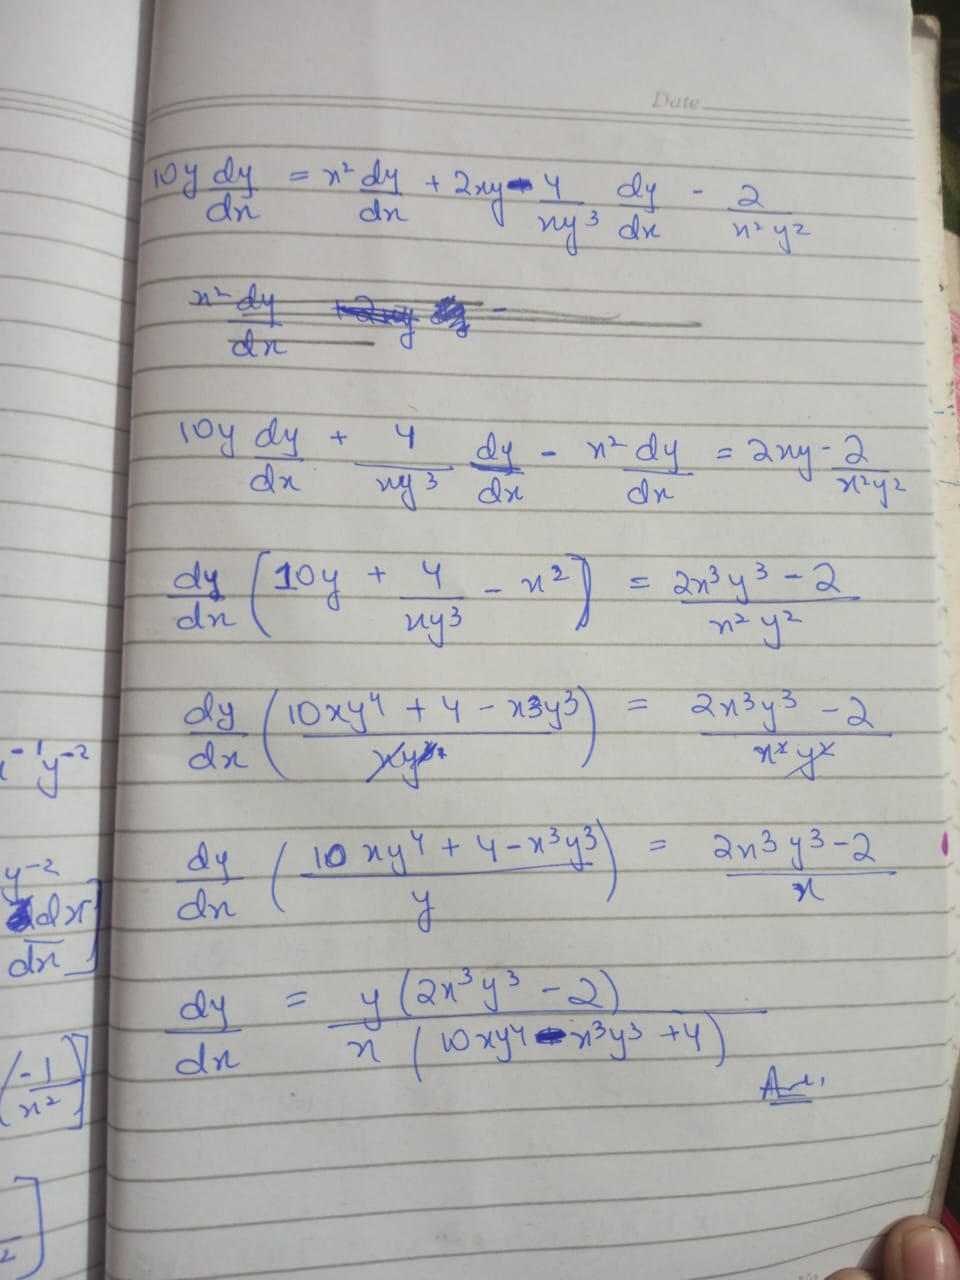 Date
10y dy/dx = x² dy/dx + 2xy - 4/xy³ dy/dx - 2/x²y²
x² dy/dx
10y dy/dx + 4/xy³ dy/dx - x² dy/dx = 2xy - 2/x²y²
dy/dx (10y + 4/xy³ - x²) = 2x³y³ - 2/x²y²
dy/dx (10xy⁴ + 4 - x³y³/xy³) = 2x³y³ - 2/x²y²
dy/dx (10xy⁴ + 4 - x³y³/y) = 2x³y³ - 2/x
dy/dx = y(2x³y³ - 2)/x(10xy⁴ - x³y³ + 4)
Ans.
x⁻¹y⁻²
y⁻²
dx/dx]
(-1/x²)]